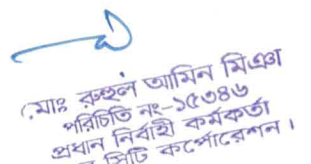 মোঃ রুহুল আমিন মিঞা
পরিচিতি নং-১৫৩৪৬
প্রধান নির্বাহী কর্মকর্তা
সিটি কর্পোরেশন।